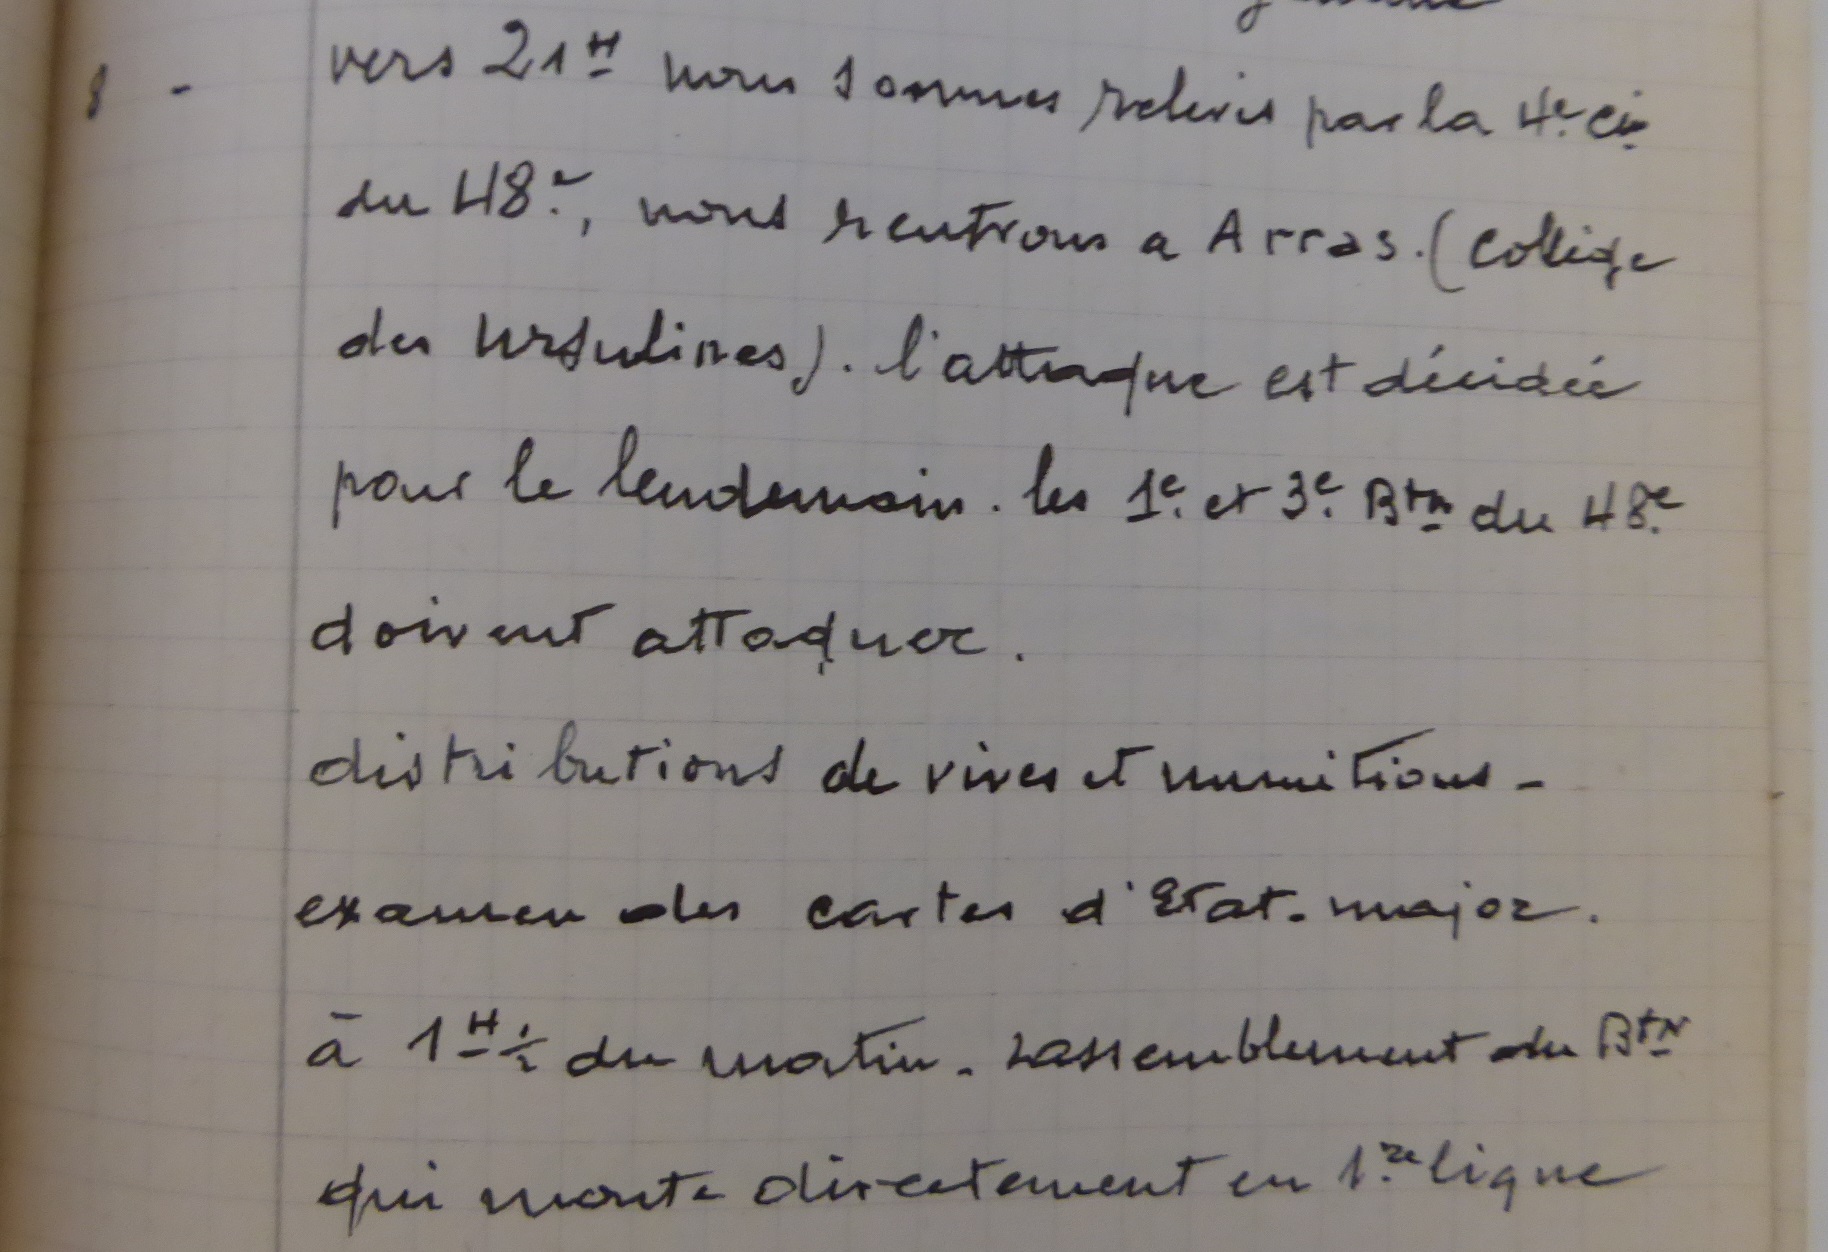 8 - vers 21H nous sommes relevés par la 4e Cie
du 48e, nous rentrons a Arras. (Collège
des Ursulines). l'attaque est décidée
pour le lendemain. les 1e et 3e Btn du 48e
doivent attaquer.
distributions de vives et munitions -
examen des cartes d'Etat-major.
à 1H ½ du matin - rassemblement du Btn
qui monte directement en 1re ligne